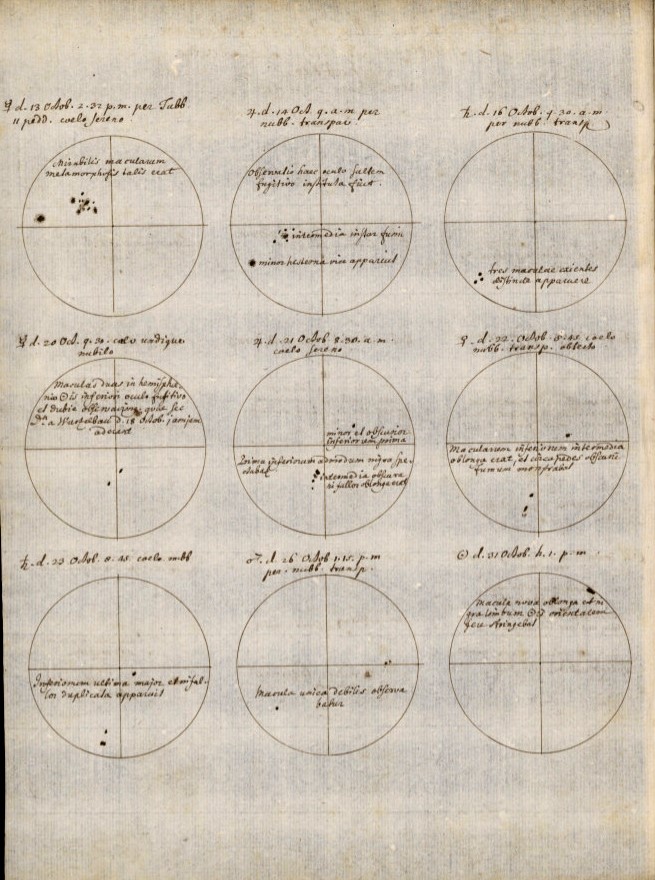 ☿ d. 13 Octob. 2.32 p.m. per Tubb
11 pedd. coelo sereno
Mirabilis macularum
metamorphosis talis erat
♃ d. 14 Oct. 9. a.m per
nubb. transpar.
Observatio haec oculo saltem
fugitivo instituta fuit.
intermedia instar fumi
minor hesterna vix apparuit
♄. d. 16 Octob. 9.30. a.m
per nubb. transp.
tres maculae exientes
distincte apparuere
☿ d. 20 Oct. 9.30. coelo undique
nubilo
Maculas duas in hemisphe
rio ☉is inferiori oculo fugitivo
et dubia observatione, quae sec
a Wurzelbau d. 18 Octob. jam jam
aderant
♃. d. 21 Octob 8.30. a.m.
coelo sereno
minor et obscurior
inferiorum prima
Prima inferiorum admodum nigra spe-
ctabat
intermedia obscura
ni fallor oblonga erat
♀. d. 22. Octob. 8.45 coelo
nubb. transp. obtecto
Macularum inferiorum intermedia
oblonga erat, et circa pedes obscuri
fumum monstrabat
♄. d. 23 Octob. 8.45. coelo nubb
Inferiorum ultima major et ni fal-
lor duplicata apparuit
♂. d. 26 Octob 1.15. p.m
per. nubb. transp.
Macula unica debilis observa
batur
☉ d. 31 Octob. h. 1. p.m.
Macula nova oblonga et ni
gra limbum ☉is orientalem
fere stringebat